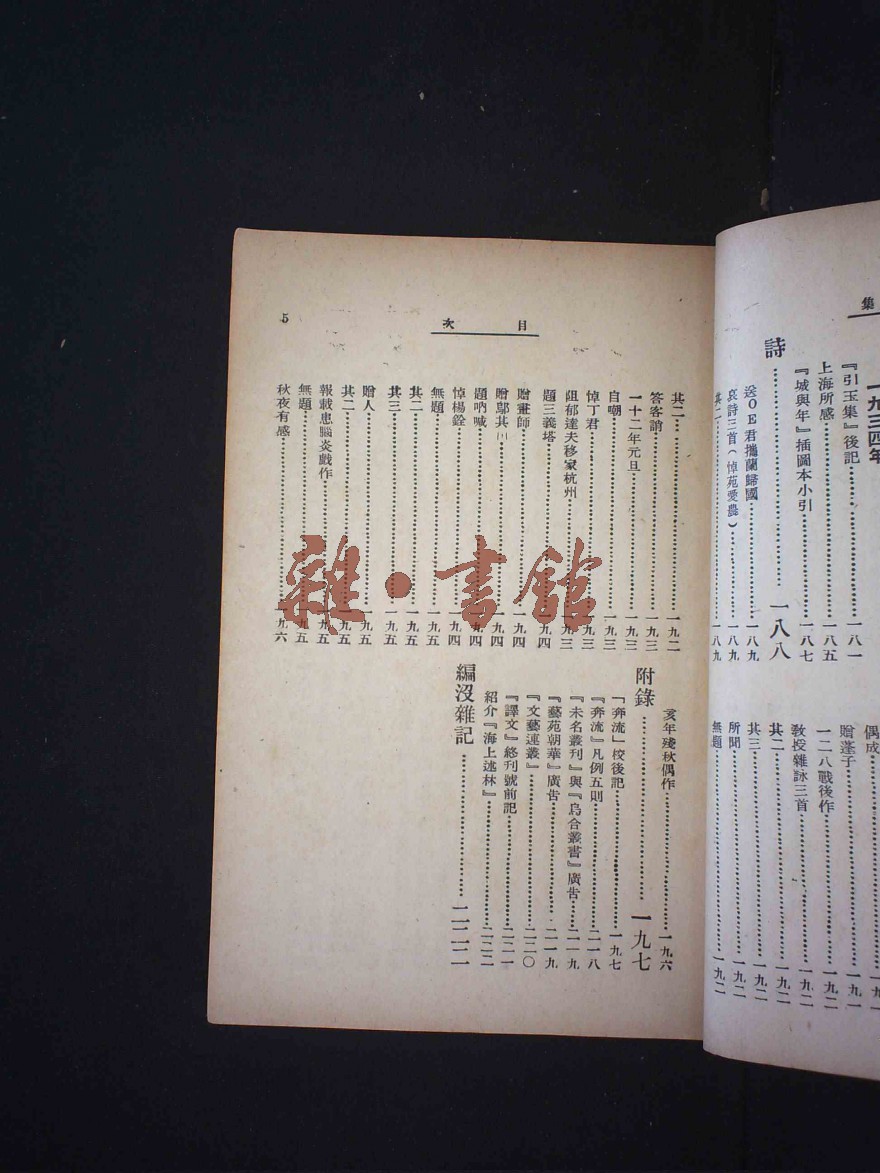 集
一九三四年
『引玉集』後記⋯⋯一八一
上海所感⋯⋯一八五
『城與年』插圖本小引⋯⋯一八七
詩⋯⋯一八八
送OE君攜蘭歸國⋯⋯一八九
哀詩三首(悼范愛農)⋯⋯一八九
其二⋯⋯一八九
偶成⋯⋯一九一
贈蓬子⋯⋯一九一
一二八戰後作⋯⋯一九二
教授雜詠三首⋯⋯一九二
其二⋯⋯一九二
其三⋯⋯一九二
所聞⋯⋯一九二
無題⋯⋯一九二
目次
5
其二⋯⋯一九二
答客誚⋯⋯一九三
一十二年元旦⋯⋯一九三
自嘲⋯⋯一九三
悼丁君⋯⋯一九三
阻郁達夫移家杭州⋯⋯一九三
題三義塔⋯⋯一九四
贈畫師⋯⋯一九四
贈鄔其⋯⋯一九四
題吶喊⋯⋯一九四
悼楊銓⋯⋯一九四
無題⋯⋯一九五
其二⋯⋯一九五
其三⋯⋯一九五
贈人⋯⋯一九五
其二⋯⋯一九五
報載患腦炎戲作⋯⋯一九五
無題⋯⋯一九五
秋夜有感⋯⋯一九六
亥年殘秋偶作⋯⋯一九六
附錄⋯⋯一九七
「奔流」校後記⋯⋯一九七
『奔流』凡例五則⋯⋯二一八
『未名叢刊』與『烏合叢書』廣告⋯⋯二一九
『藝苑朝華』廣告⋯⋯二一九
『文藝連叢』⋯⋯二二〇
『譯文』終刊號前記⋯⋯二二一
紹介『海上述林』⋯⋯二二二
編沒雜記⋯⋯
雜·書館